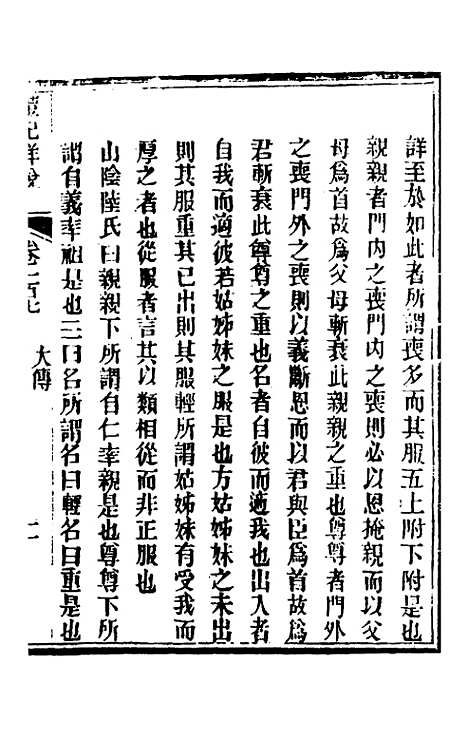 詳至於如此者所謂喪多而其服五上附下附是也
親親者門內之喪門內之喪則必以恩掩親而以父
母爲首故爲父母斬衰此親親之重也尊尊者門外
之喪門外之喪則以義斷恩而以君與臣爲首故爲
君斬衰此尊尊之重也名者自彼而適我也出入者
自我而適彼若姑姊妹之服是也方姑姊妹之未出
則其服重其已出則其服輕所謂姑姊妹有受我而
厚之者也從服者言其以類相從而非正服也
山陰陸氏曰親親下所謂自仁率親是也尊尊下所
謂自義率祖是也三曰名所謂名曰輕名曰重是也
禮記詳說
卷一百七
大傳